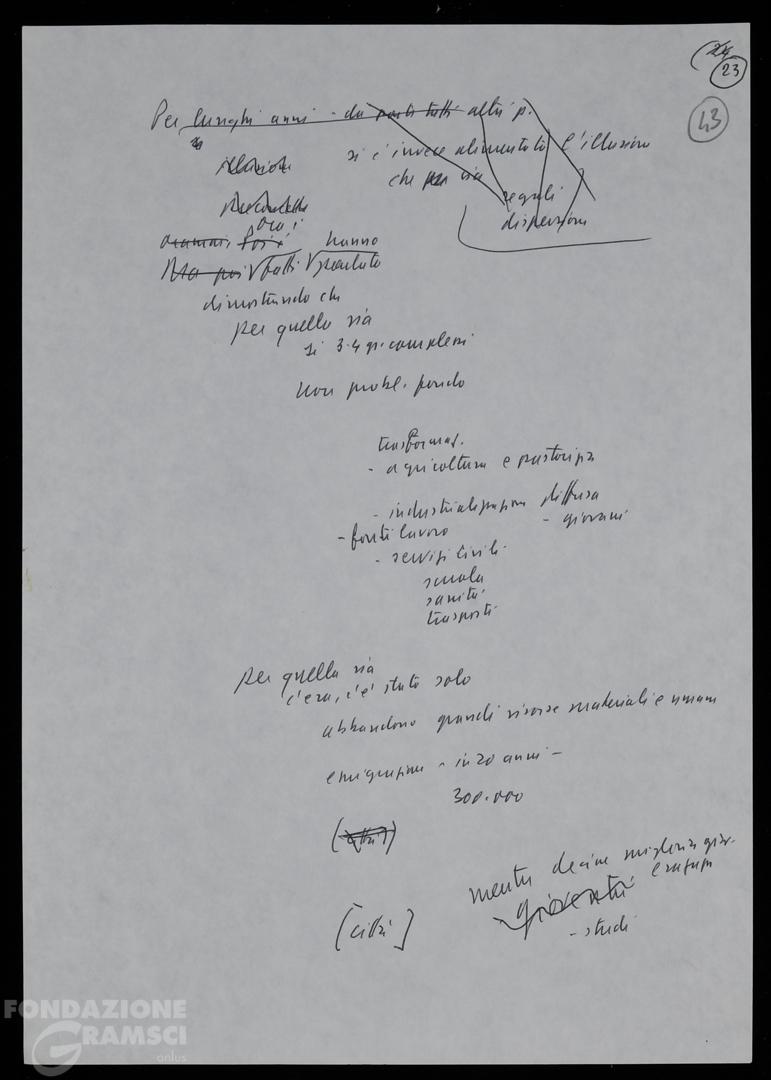 24
23
43
Per lunghi anni - da parti tutti altri p.
si è invece alimentata l'illusione
illusione
che per via
regali
dispersioni
ora i
oramai hanno
Ma poi fatti parlato
dimostrando che
per quella via
sì 3-4 gr. complessi
non probl. fondo
trasformaz.
- agricoltura e pastorizia
- industrializzazione diffusa
- fonti lavoro - giovani
- servizi civili -
scuola
sanità
trasporti
per quella via
c'era, c'è stato solo
abbandono grandi risorse materiali e umane
emigrazione - in 20 anni -
300.000
(città)
mentre decine migliaia giov.
e ragazze
gioventù
- studi
[città]
FONDAZIONE
GRAMSCI
onlus